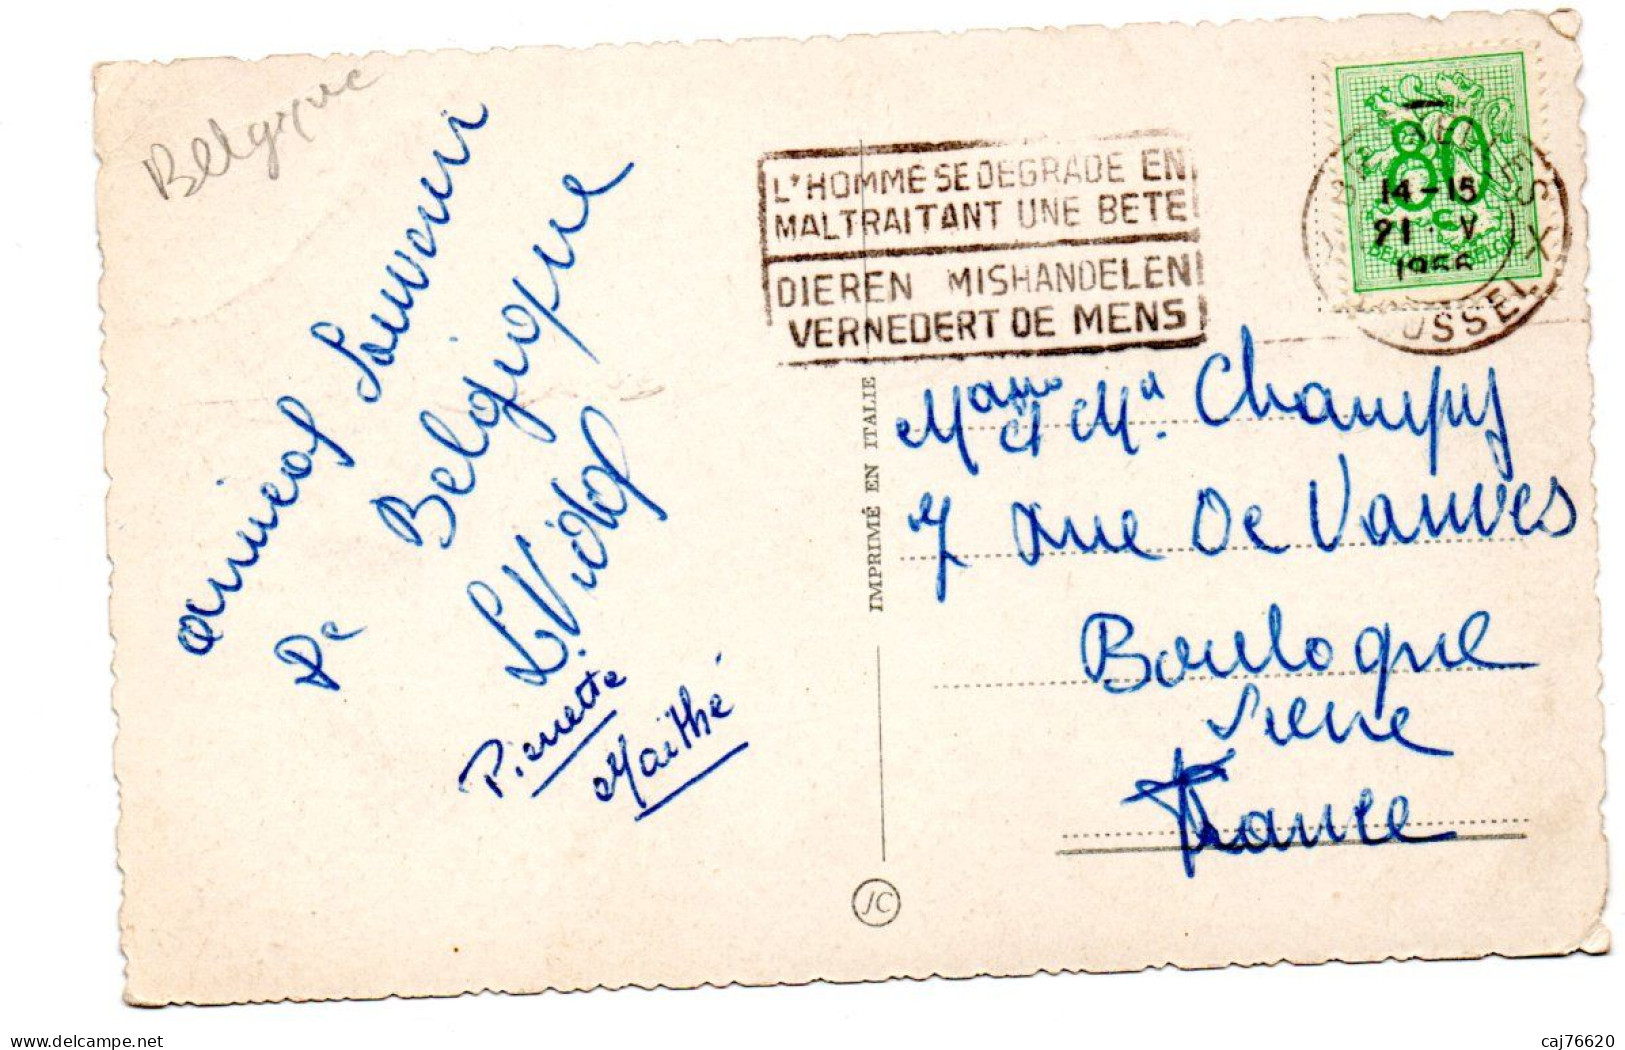 Belgique
amical Souvenir
De Belgique
L. Vidal
Pierrette
Maïthé
L'HOMME SE DEGRADE EN
MALTRAITANT UNE BETE
DIEREN MISHANDELEN
VERNEDERT DE MENS
80
BELGIE
14-15
21 · V
1956
X
IMPRIMÉ EN ITALIE
et M. Champy
7 rue De Vanves
Boulogne
Seine
France
JC
Delcampe.net
caj76620